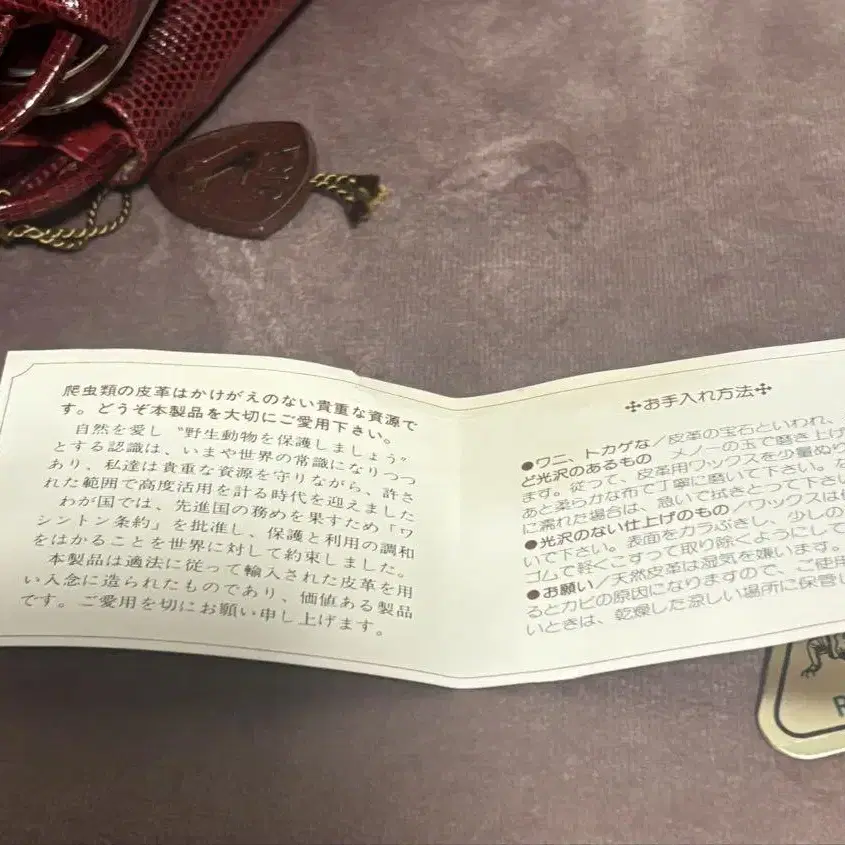 爬虫類の皮革はかけがえのない貴重な資源で
す。どうぞ本製品を大切にご愛用下さい。
自然を愛し〝野生動物を保護しましょう〟
とする認識は、いまや世界の常識になりつつ
あり、私達は貴重な資源を守りながら、許さ
れた範囲で高度活用を計る時代を迎えました
わが国では、先進国の務めを果すため「ワ
シントン条約」を批准し、保護と利用の調和
をはかることを世界に対して約束しました。
本製品は適法に従って輸入された皮革を用
い入念に造られたものであり、価値ある製品
です。ご愛用を切にお願い申し上げます。
✣お手入れ方法✣
●ワニ、トカゲな／皮革の宝石といわれ、
ど光沢のあるもの メノーの玉で磨き上げ
ます。従って、皮革用ワックスを少量ぬり
あと柔らかな布で丁寧に磨いて下さい。
に濡れた場合は、急いで拭きとって下さい
●光沢のない仕上げのもの／ワックスは
いて下さい。表面をカラぶきし、少しの
ゴムで軽くこすって取り除くようにして
●お願い／天然皮革は湿気を嫌います。
るとカビの原因になりますので、ご使用
いときは、乾燥した涼しい場所に保管し